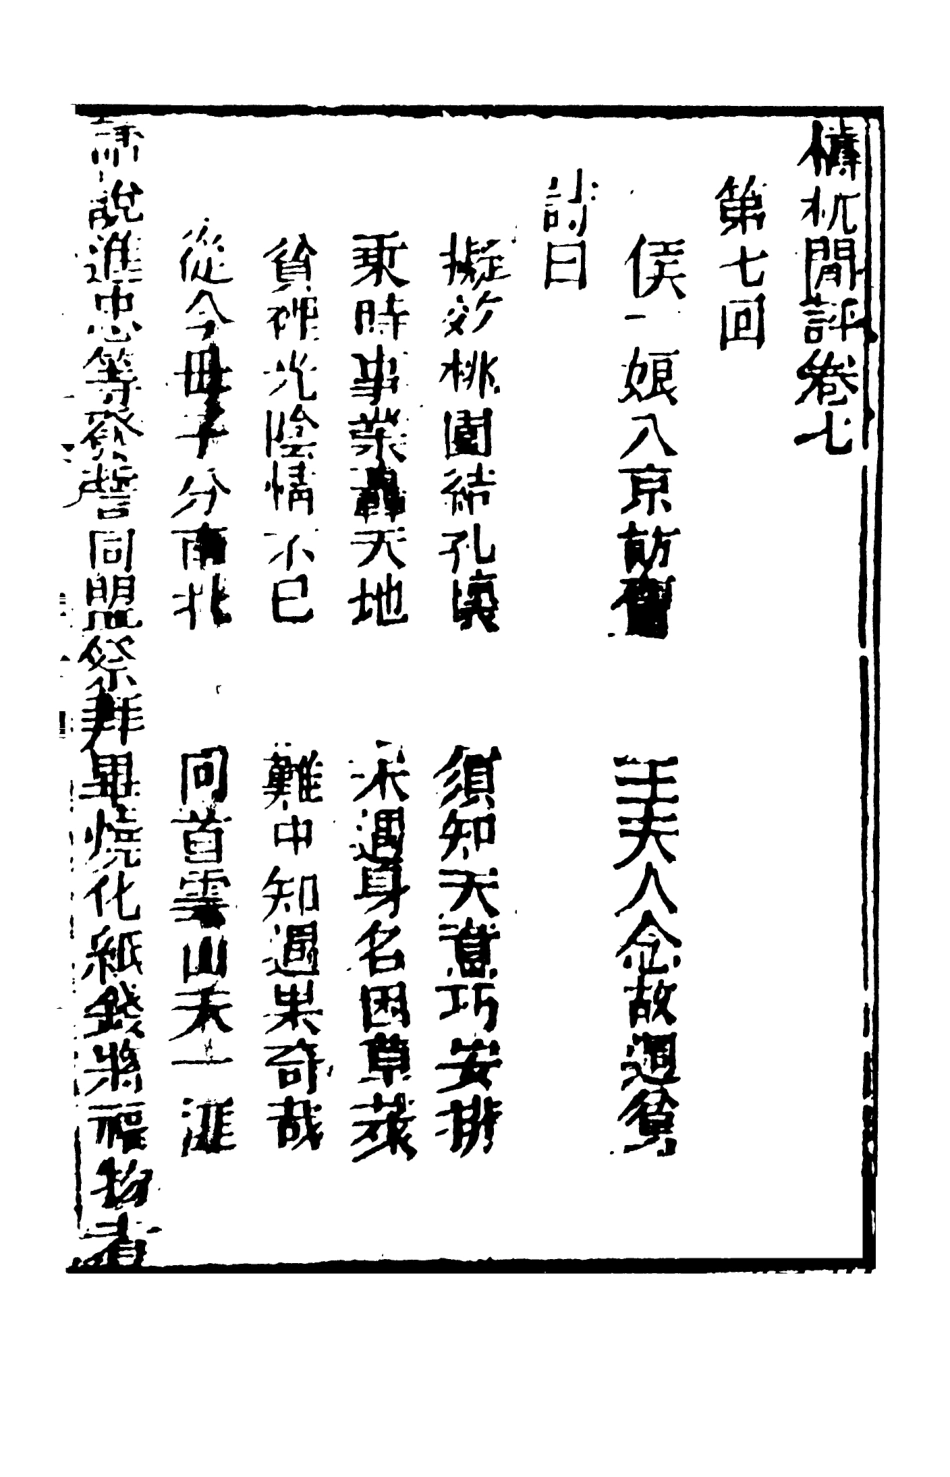 檮杌閒評卷七
第七回
侯一娘入京訪舊　王夫人念故週貧
詩曰
擬效桃園結孔懷　須知天意巧安排
乘時事業轟天地　未遇身名困草萊
貧裡光陰情不已　難中知遇果奇哉
從今母子分南北　回首雲山天一涯
話說進忠等發誓同盟祭拜畢燒化紙錢將福物